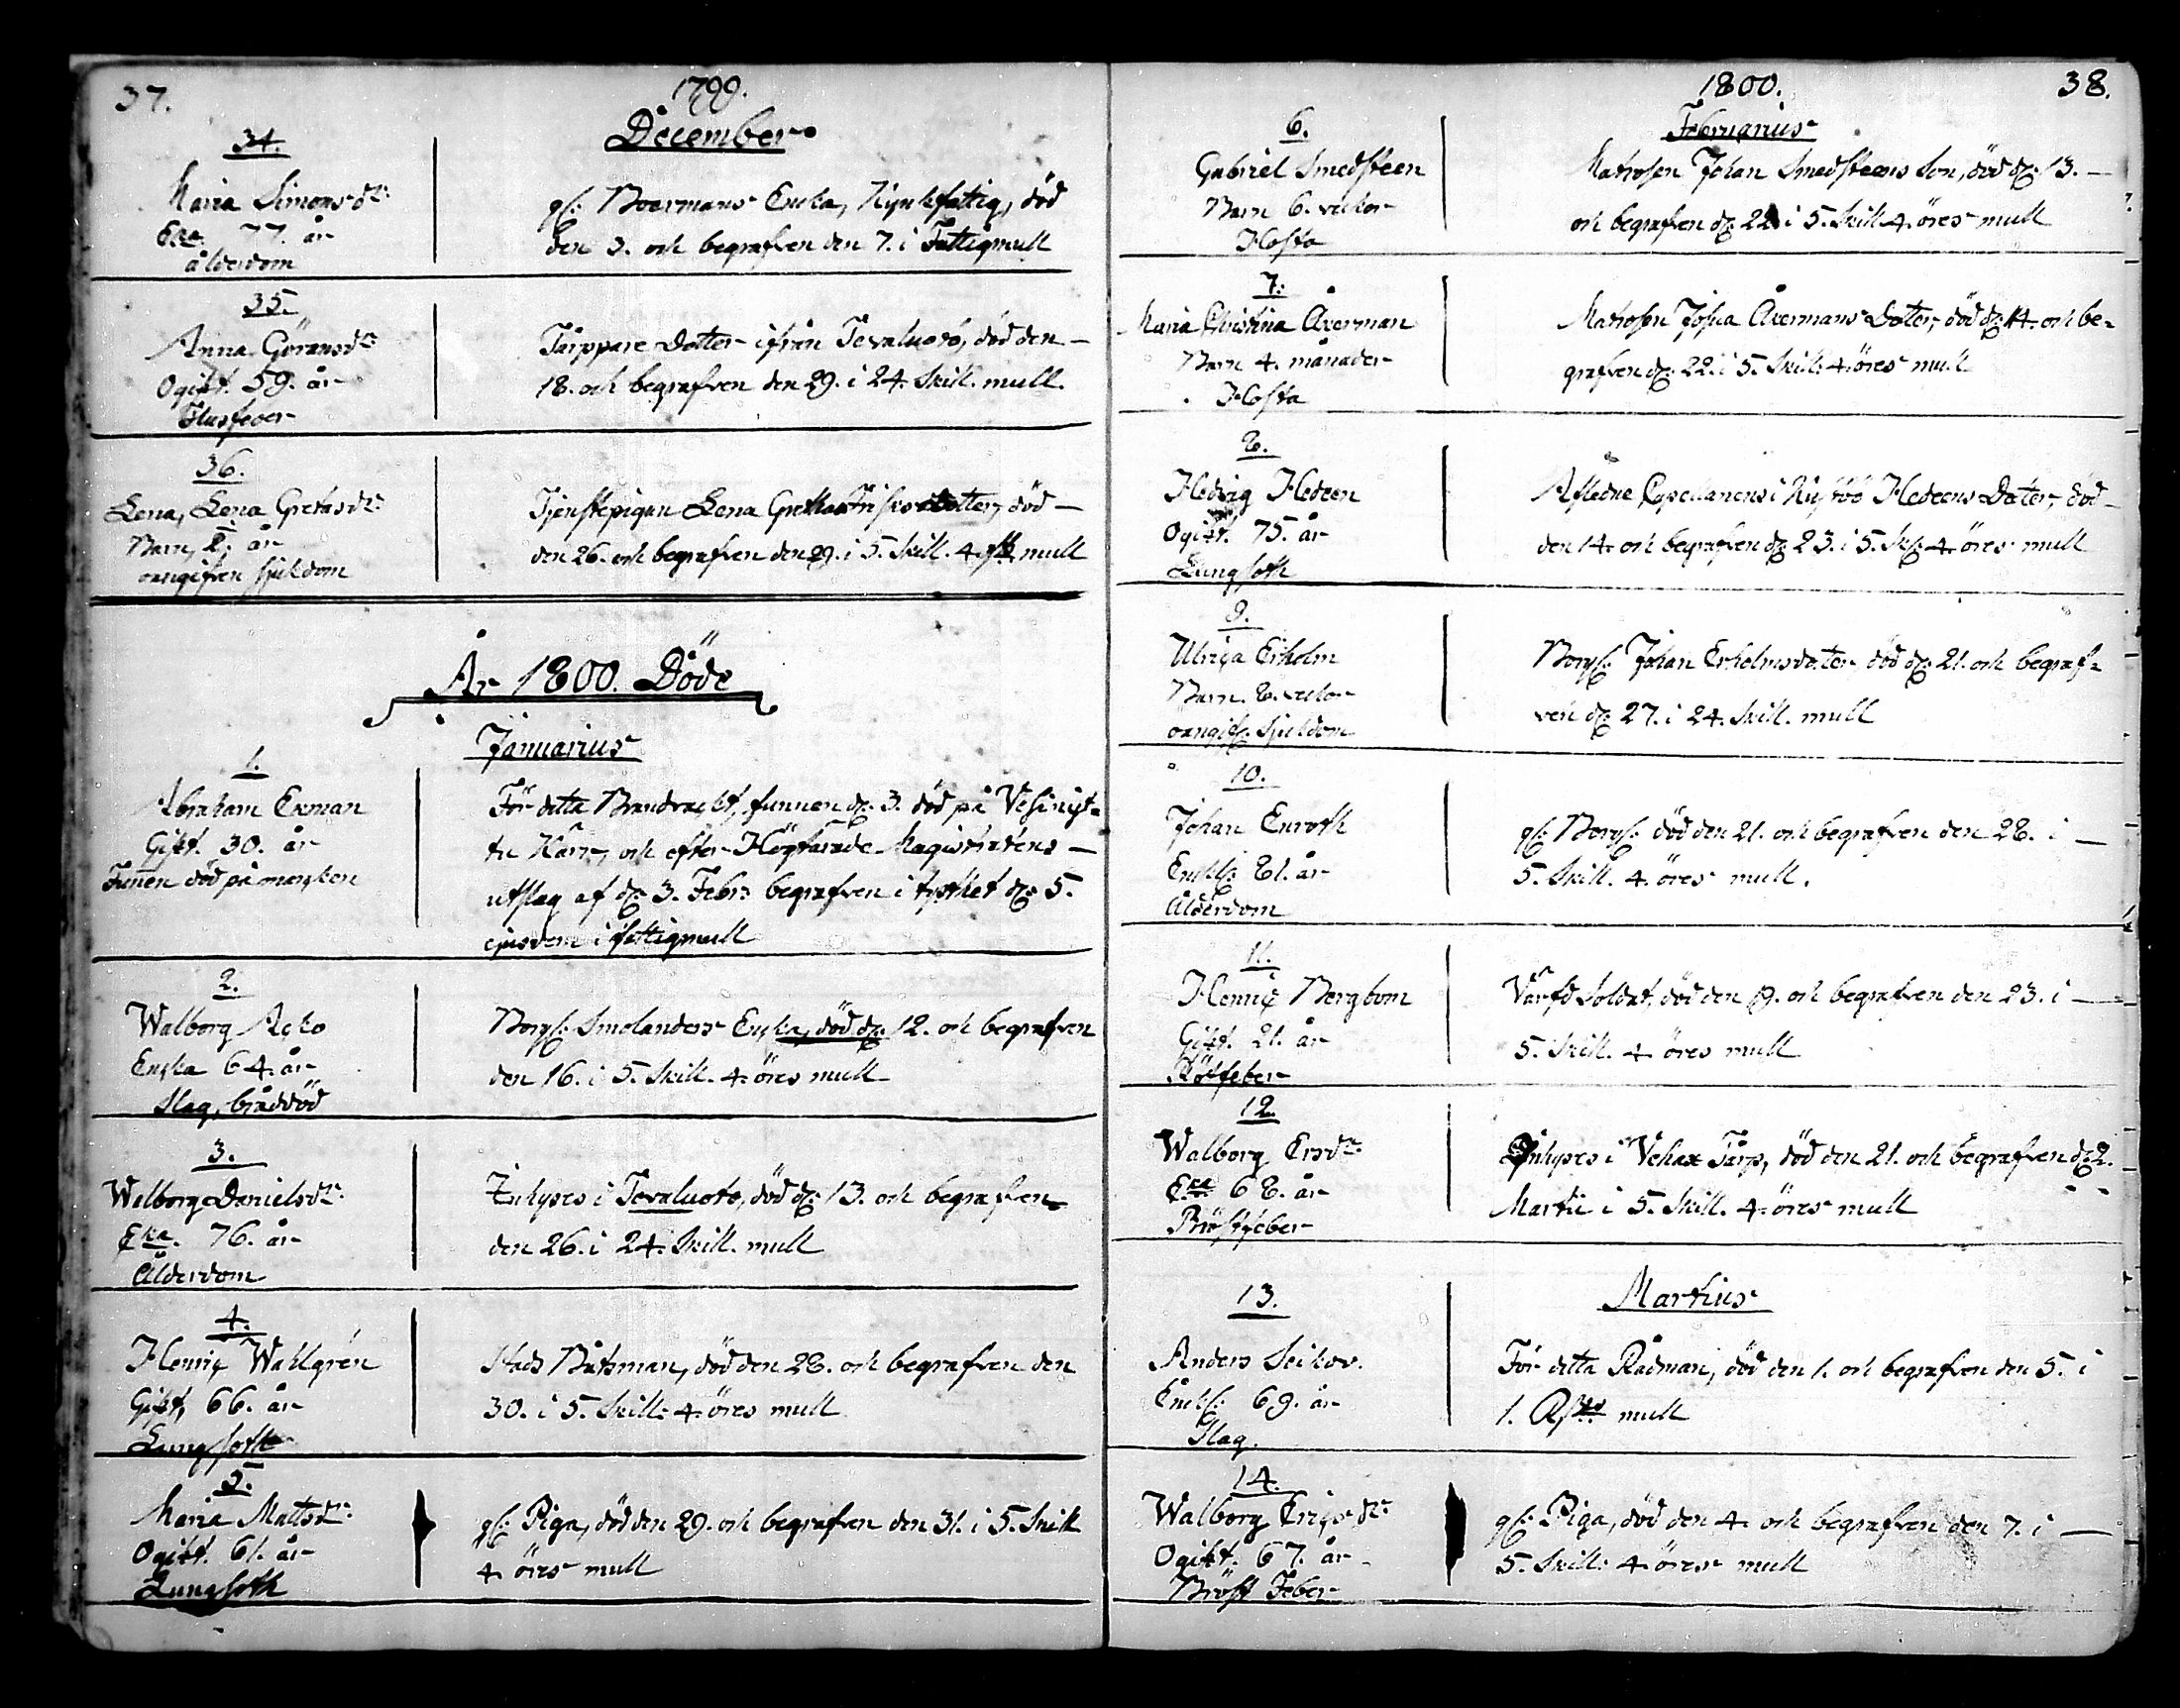 37.
1799.
December
34.
Maria Simonsdr:
Eka. 77. år
ålderdom
gl: Boermans Encka, Rynkfattig, död
den 3. och begrafven den 7. i Fattigmull
35.
Anna Göransdr:
Ogift. 59. år
Flusfeber
Tårppare Dotter ifrån Tevaluoto, död den —
18. och begrafven den 29. i 24. Skill. mull.
36.
Lena, Lena Gretasdr:
Barn, 2. år
oangifven sjukdom
Tjenstepigan Lena Gretha Dotter, död —
den 26. och begrafven den 29. i 5. Skill. 4. mull
År 1800. Döde
Januarius
1.
Abraham Exman
Gift. 30. år
Funnen död på marken
För detta Brandvackt, funnen d: 3. död på
Kärr, och efter Högtärade Magistratens —
utslag af d: 3. Febr: begrafven i tysthet d: 5.
ejusdem i fattigmull
2.
Walborg
Encka 64. år
Slag, bråddöd
Borgl: Smolanders Encka, död d: 12. och begrafven
den 16. i 5. Skill. 4. öres mull
3.
Walborg Danielsdr:
Eka. 76. år
Ålderdom
Inhyses i Tevaluoto, död d: 13. och begrafven
den 26. i 24. Skill. mull
4.
Henric Wahlgrén
Gift, 66. år
Lungsoth
Stads Båtsman, död den 28. och begrafven den
30. i 5. Skill. 4. öres mull
5.
Maria Mattsdr:
Ogift. 61. år
Lungsoth
gl: Piga, död den 29. och begrafven den 31. i 5. Skill
4 öres mull
1800.
38.
Februarius
6.
Gabriel Smedsteen
Barn 6. veckor
Hosta
Matrosen Johan Smedsteens Son, död d: 13. —
och begrafven d: 22 i 5. Skill. 4. öres mull
7.
Maria Christina Åkerman
Barn 4. månader
Hosta
Matrosen Josua Åkermans Dotter, död d: 14. och be-
grafven d: 22. i 5. Skill: 4. öres mull
8.
Hedvig Hedeen
Ogift. 75. år
Lungsoth
Afledne Capellanens i Hedeens Dotter, död —
den 14. och begrafven d: 23. i 5. Sk: 4. öres mull
9.
Ulrica Erholm
Barn. 8. veckor
oangif: Sjukdom
Borgl: Johan Erholmsdotter död d: 21. och begraf-
ven d: 27. i 24. Skill. mull
10.
Johan Enroth
Enkl: 81. år
Ålderdom
gl: Borgl: död den 21. och begrafven den 28. i —
5. Skill. 4. öres mull.
11.
Henric Bergbom
Gift. 21. år
Rötfeber
Värfd Soldat, död den 19. och begrafven den 23. i —
5. Skill. 4 öres mull
12.
Walborg Ersdr:
Eka 68. år
Bröstfeber
Inhyses i Vehax Tårp, död den 21. och begrafven d: 2.
Martii i 5. Skill. 4. öres mull
Martius
13.
Anders Seikow.
Enkl: 69. år
Slag.
För detta Rådman, död den 1. och begrafven den 5. i
1. mull
14.
Walborg Ericsdr:
Ogift. 67. år
Bröst Feber
gl: Piga, död den 4. och begrafven den 7. i —
5. Skill: 4. öres mull